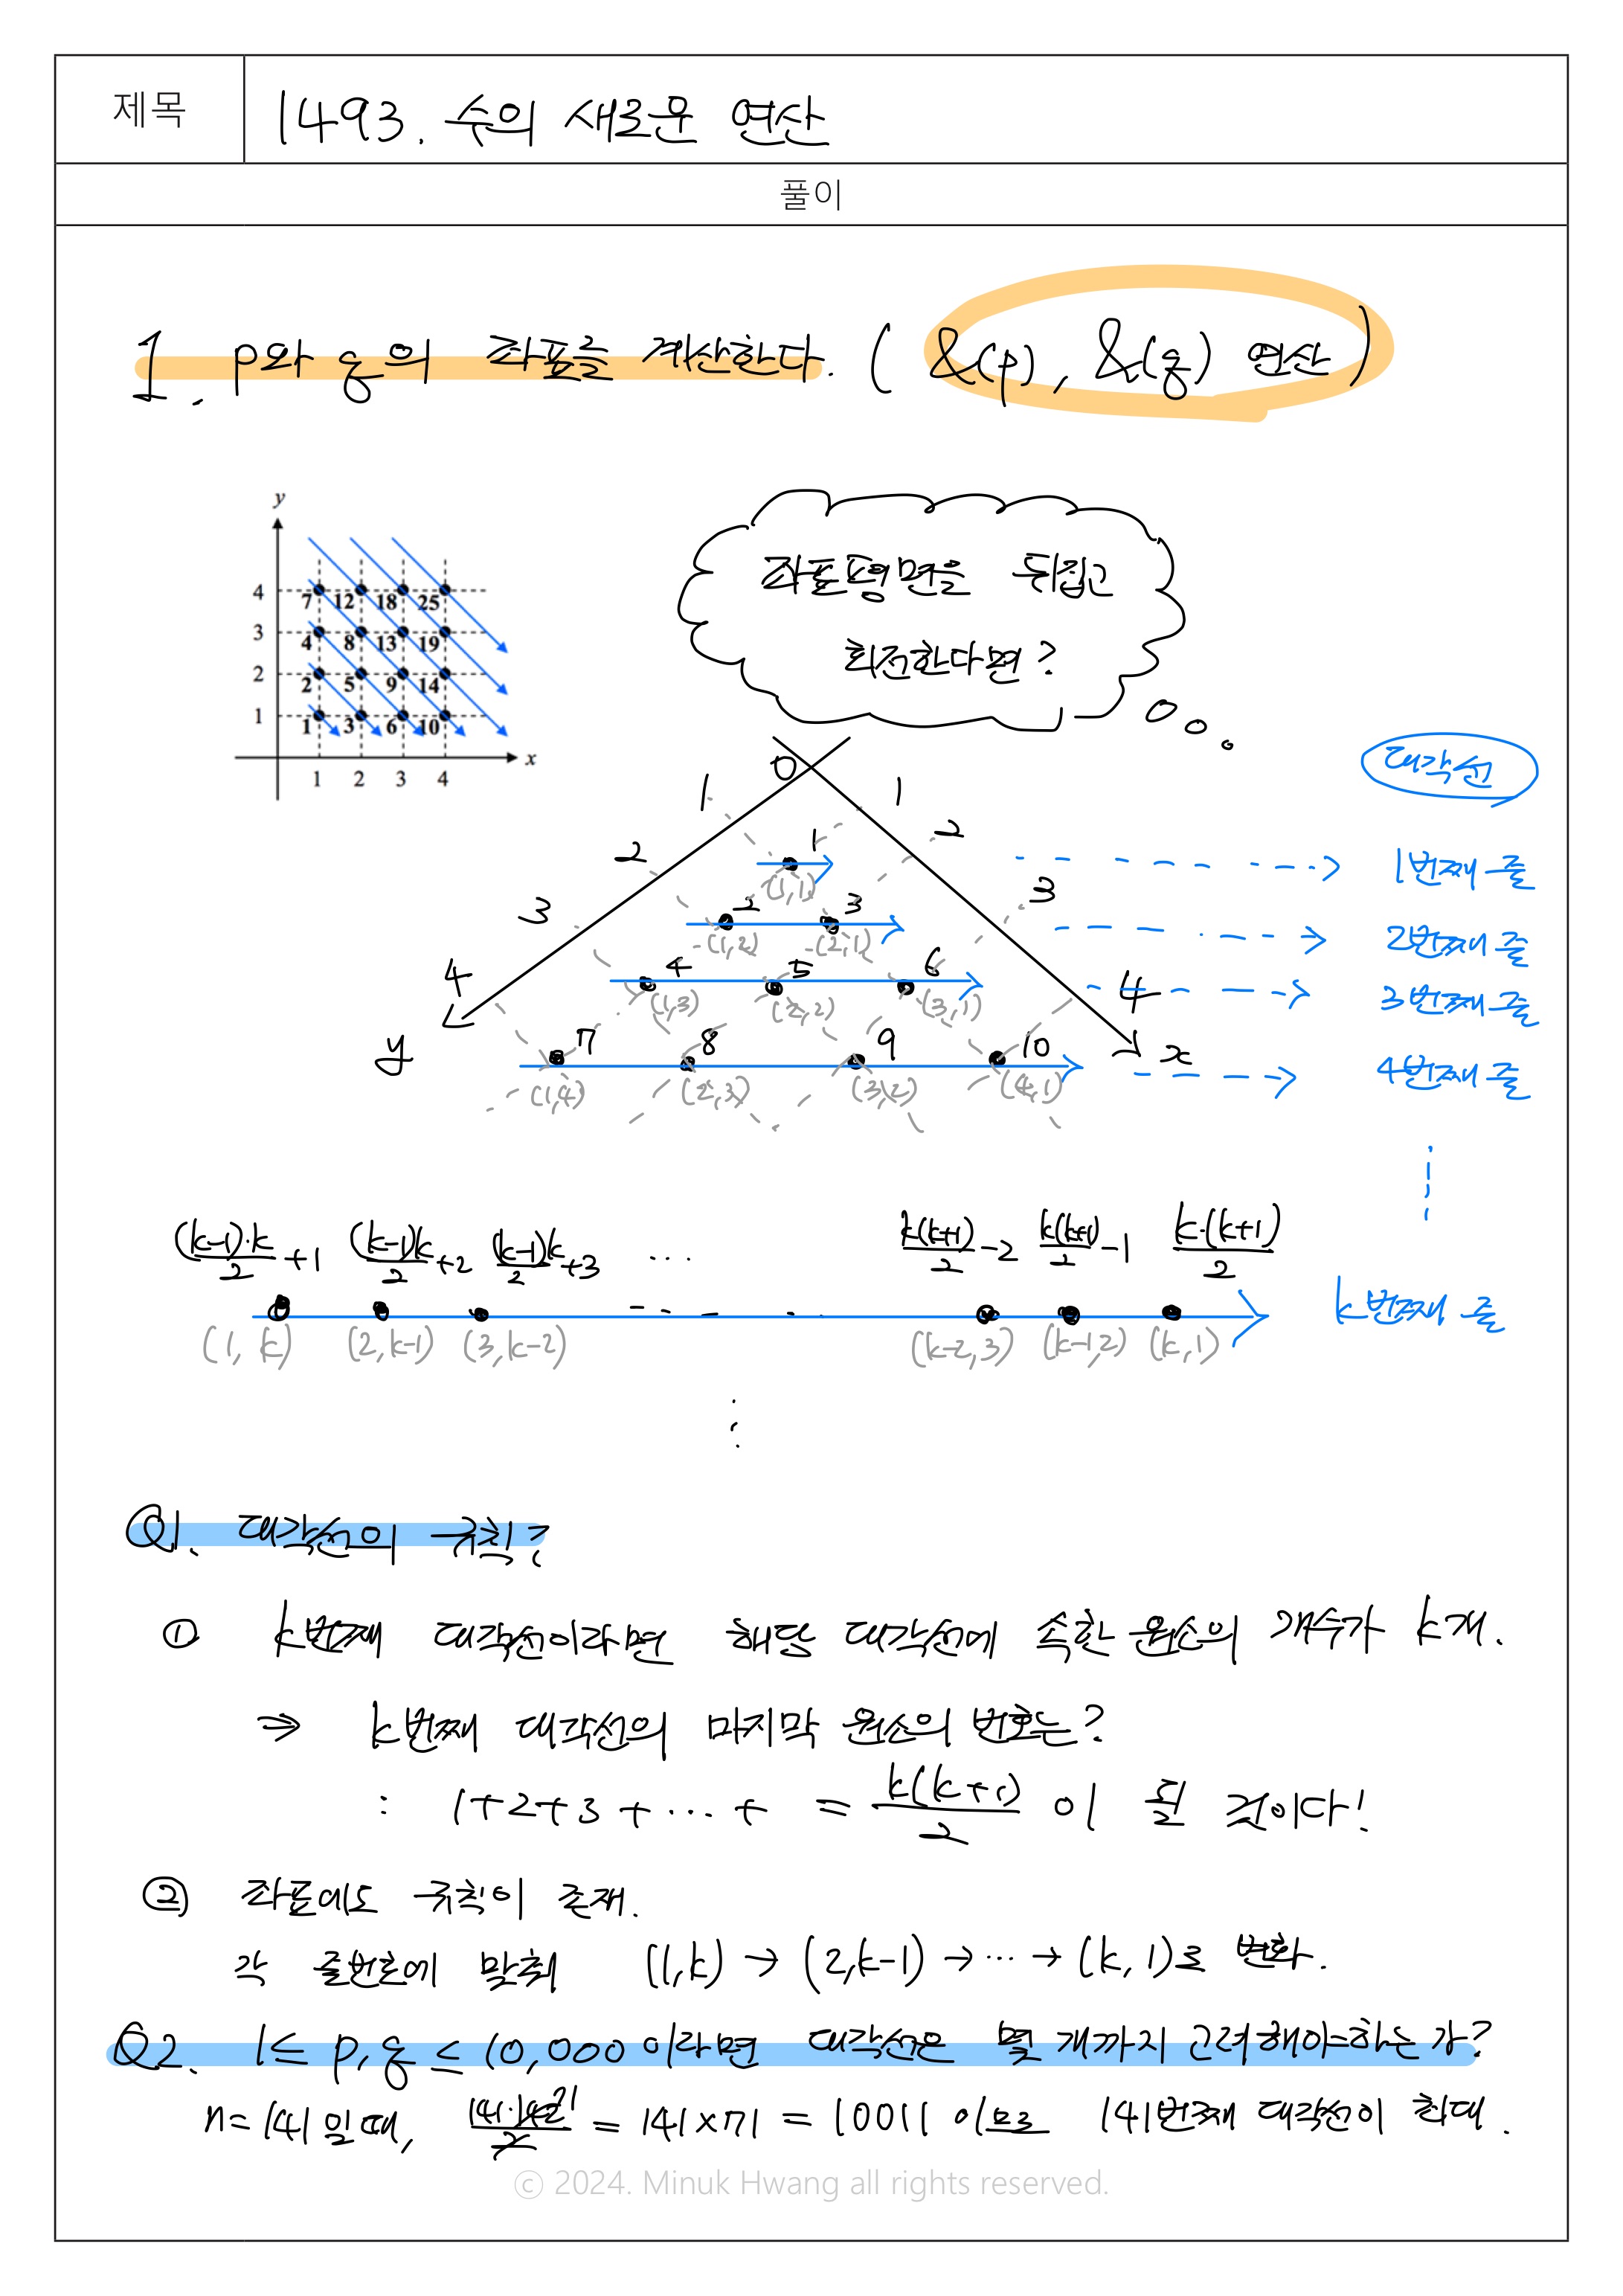 제목
1493. 수의 새로운 연산
풀이
1. p와 q의 좌표를 계산한다. ( &(p), &(q) 연산 )
y
4
3
2
1
7 12 18 25
4 8 13 19
2 5 9 14
1 3 6 10
1 2 3 4
x
좌표평면을 뒤집고
회전한다면?
대각선
0
1 1
2 2
3 3
4 4
y x
1
(1,1)
1번째 줄
2 3
(1,2) (2,1)
2번째 줄
4 5 6
(1,3) (2,2) (3,1)
3번째 줄
7 8 9 10
(1,4) (2,3) (3,2) (4,1)
4번째 줄
(k-1)·k/2 +1 (k-1)k/2 +2 (k-1)k/2 +3 ... k(k+1)/2 -2 k(k+1)/2 -1 k·(k+1)/2
k번째 줄
(1, k) (2,k-1) (3,k-2) (k-2,3) (k-1,2) (k,1)
Q1. 대각선의 규칙?
① k번째 대각선이라면 해당 대각선에 속한 원소의 개수가 k개.
⇒ k번째 대각선의 마지막 원소의 번호는?
: 1+2+3+...+ = k(k+1)/2 이 될 것이다!
② 좌표에도 규칙이 존재.
각 줄번호에 맞춰 (1,k) → (2,k-1) → ... → (k,1)로 변화.
Q2. 1≤ p,q ≤ 10,000 이라면 대각선은 몇 개까지 고려해야하는가?
n=141일 때, 141·142/2 71 = 141×71 = 10011 이므로 141번째 대각선이 최대.
ⓒ 2024. Minuk Hwang all rights reserved.